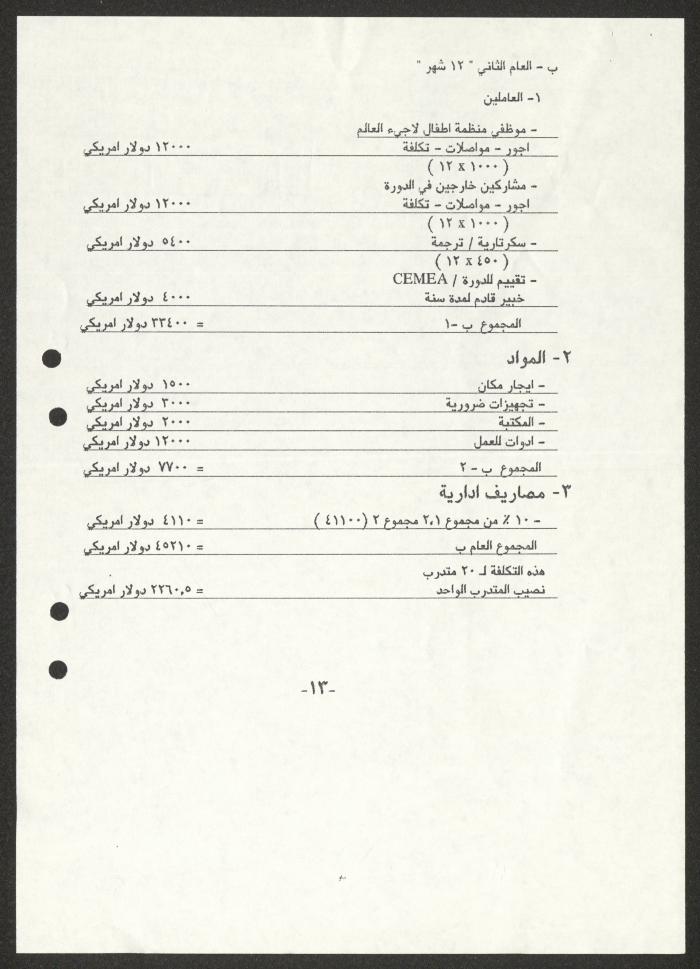 ب - العام الثاني " ١٢ شهر "
١- العاملين
- موظفي منظمة اطفال لاجيء العالم
اجور - مواصلات - تكلفة ١٢٠٠٠ دولار امريكي
( ١٢ x ١٠٠٠ )
- مشاركين خارجين في الدورة
اجور - مواصلات - تكلفة ١٢٠٠٠ دولار امريكي
( ١٢ x ١٠٠٠ )
- سكرتارية / ترجمة ٥٤٠٠ دولار امريكي
( ١٢ x ٤٥٠ )
- تقييم للدورة / CEMEA
خبير قادم لمدة سنة ٤٠٠٠ دولار امريكي
المجموع ب -١ = ٣٣٤٠٠ دولار امريكي
٢- المواد
- ايجار مكان ١٥٠٠ دولار امريكي
- تجهيزات ضرورية ٣٠٠٠ دولار امريكي
- المكتبة ٢٠٠٠ دولار امريكي
- ادوات للعمل ١٢٠٠٠ دولار امريكي
المجموع ب - ٢ = ٧٧٠٠ دولار امريكي
٣- مصاريف ادارية
- ١٠ ٪ من مجموع ٢،١ مجموع ٢ (٤١١٠٠ ) = ٤١١٠ دولار امريكي
المجموع العام ب = ٤٥٢١٠ دولار امريكي
هذه التكلفة لـ ٢٠ متدرب
نصيب المتدرب الواحد = ٢٢٦٠,٥ دولار امريكي
-١٣-